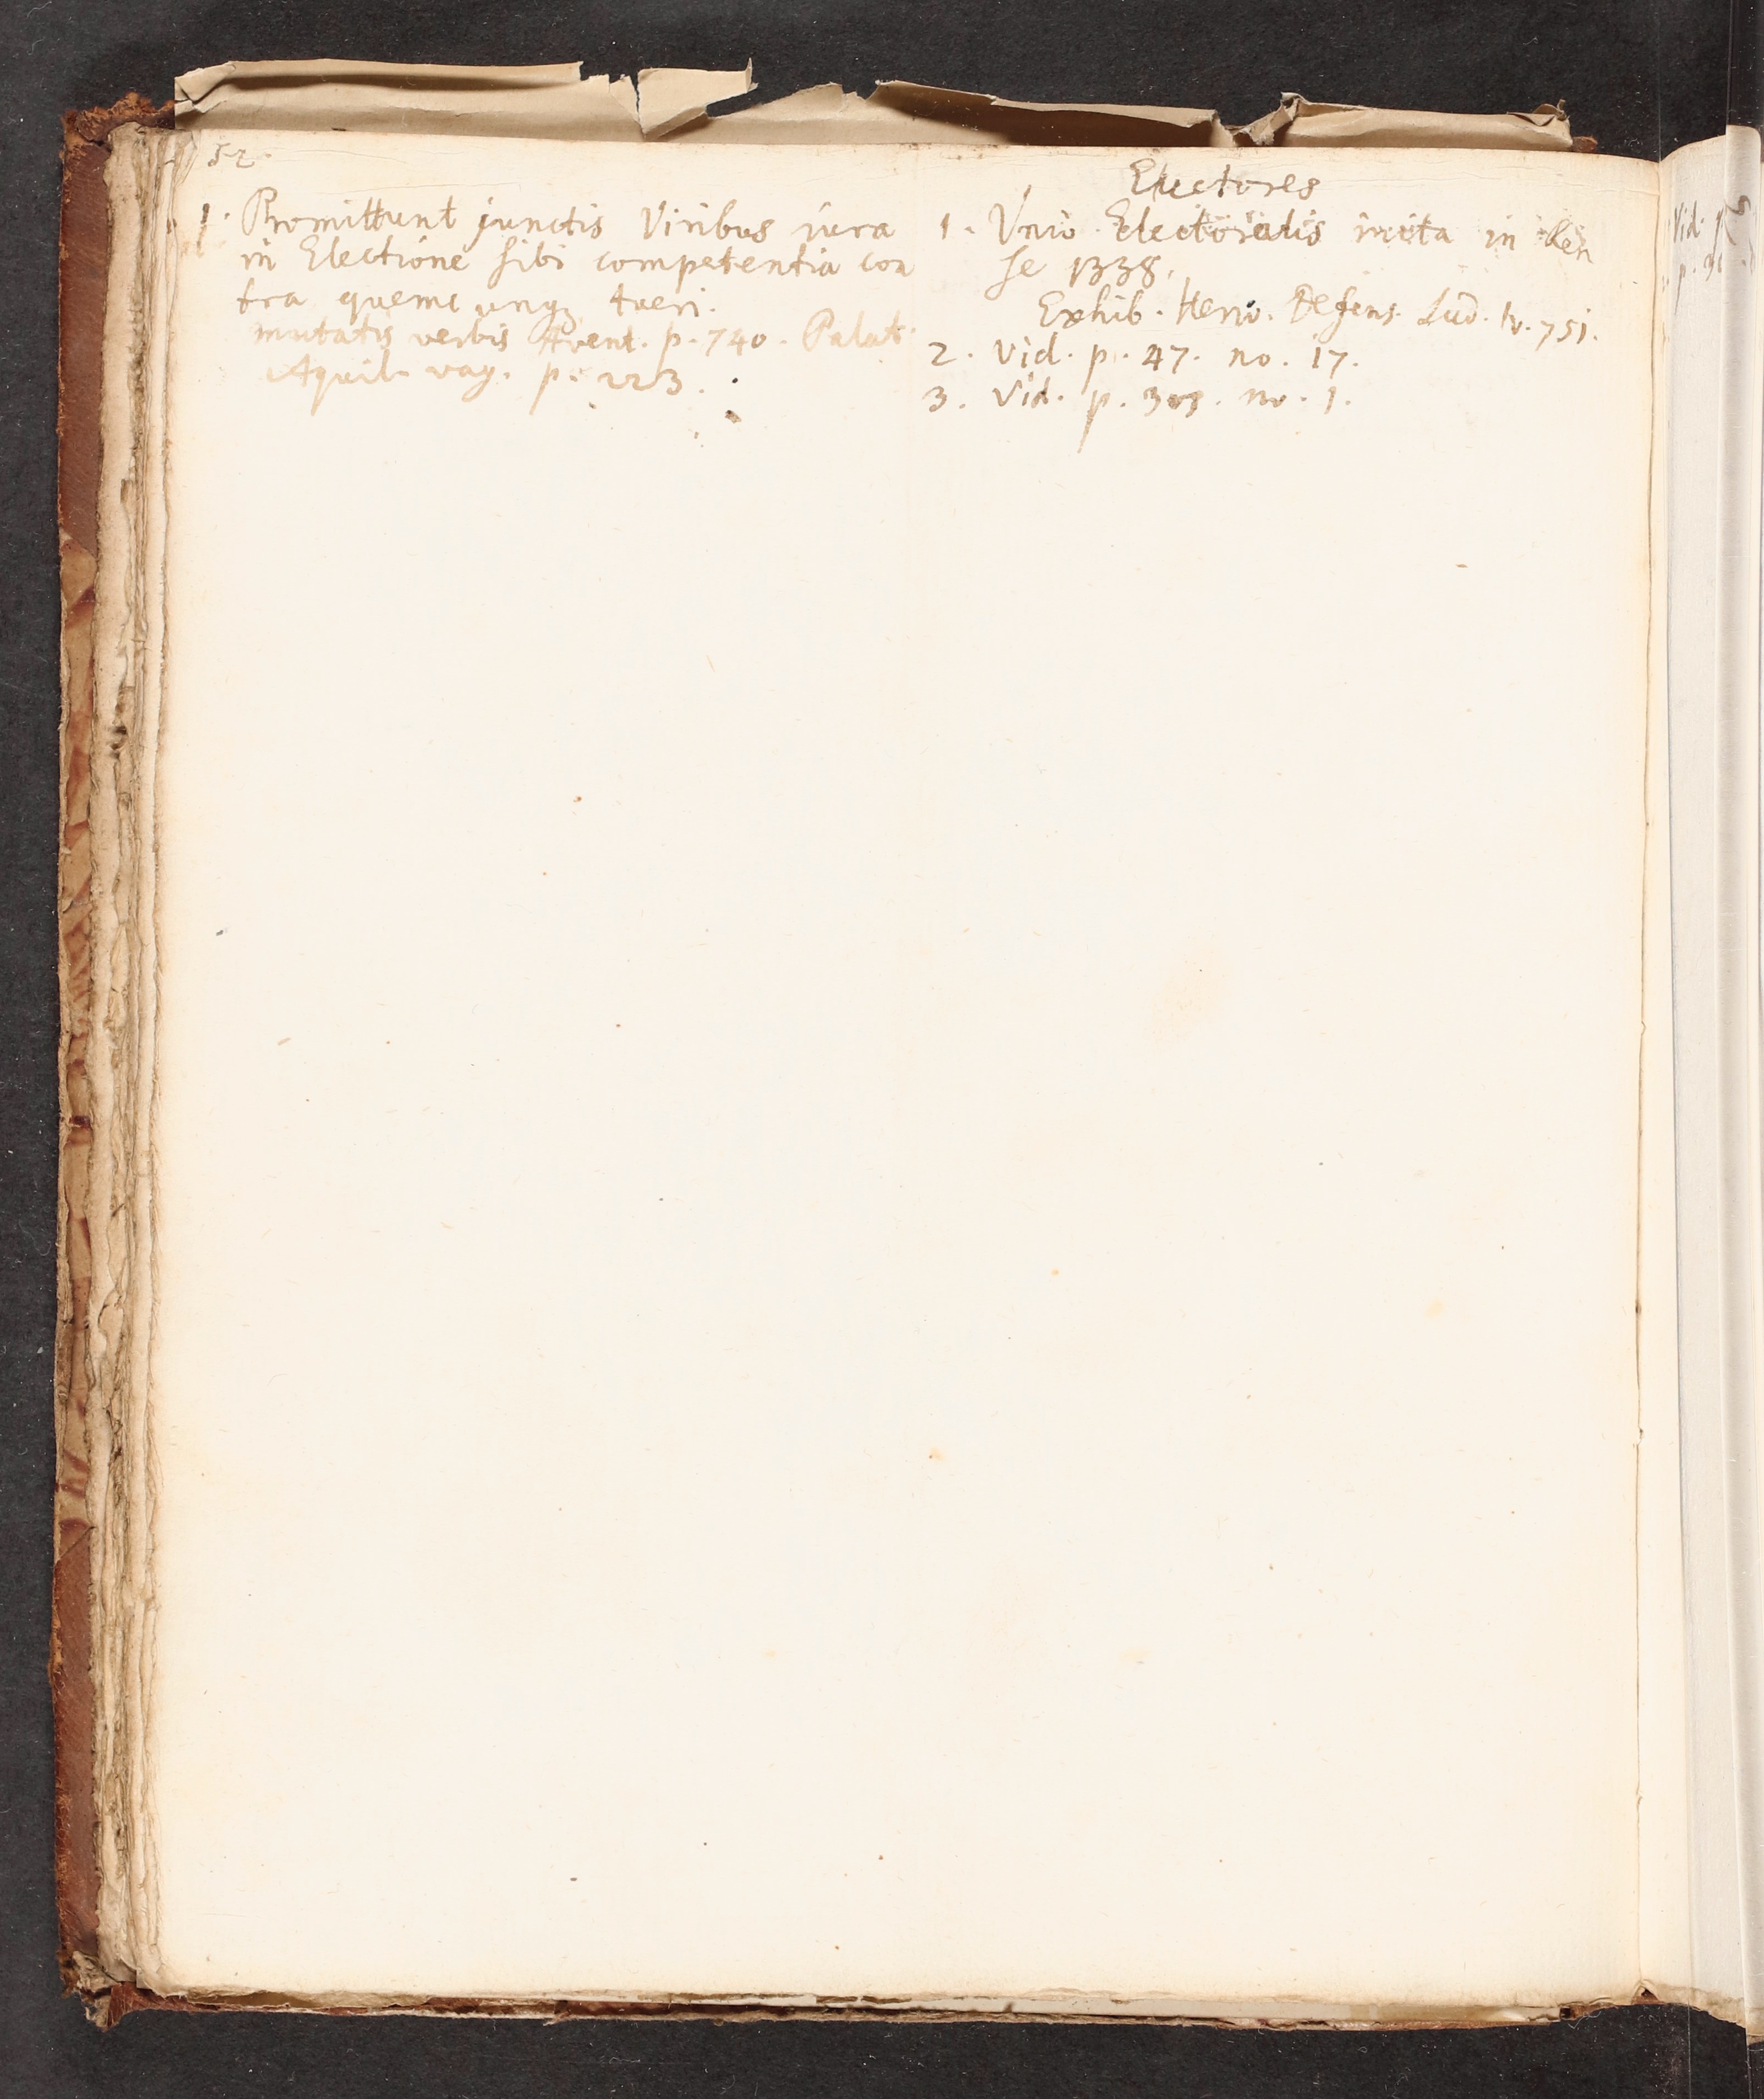 52.
1. Promittunt junctis Viribus iura
in Electione sibi competentia con
tra quemcunq tueri.
mutatis verbis Avent. p. 740. Palat.
Aquil. vag. p. 223.
Electores
1. Vnio Electoralis inita in Ren
se 1338.
Exhib. Herw. Defens. Lud. IV. 751.
2. Vid. p. 47. no. 17.
3. Vid. p. no. 1.
Vid.
p.